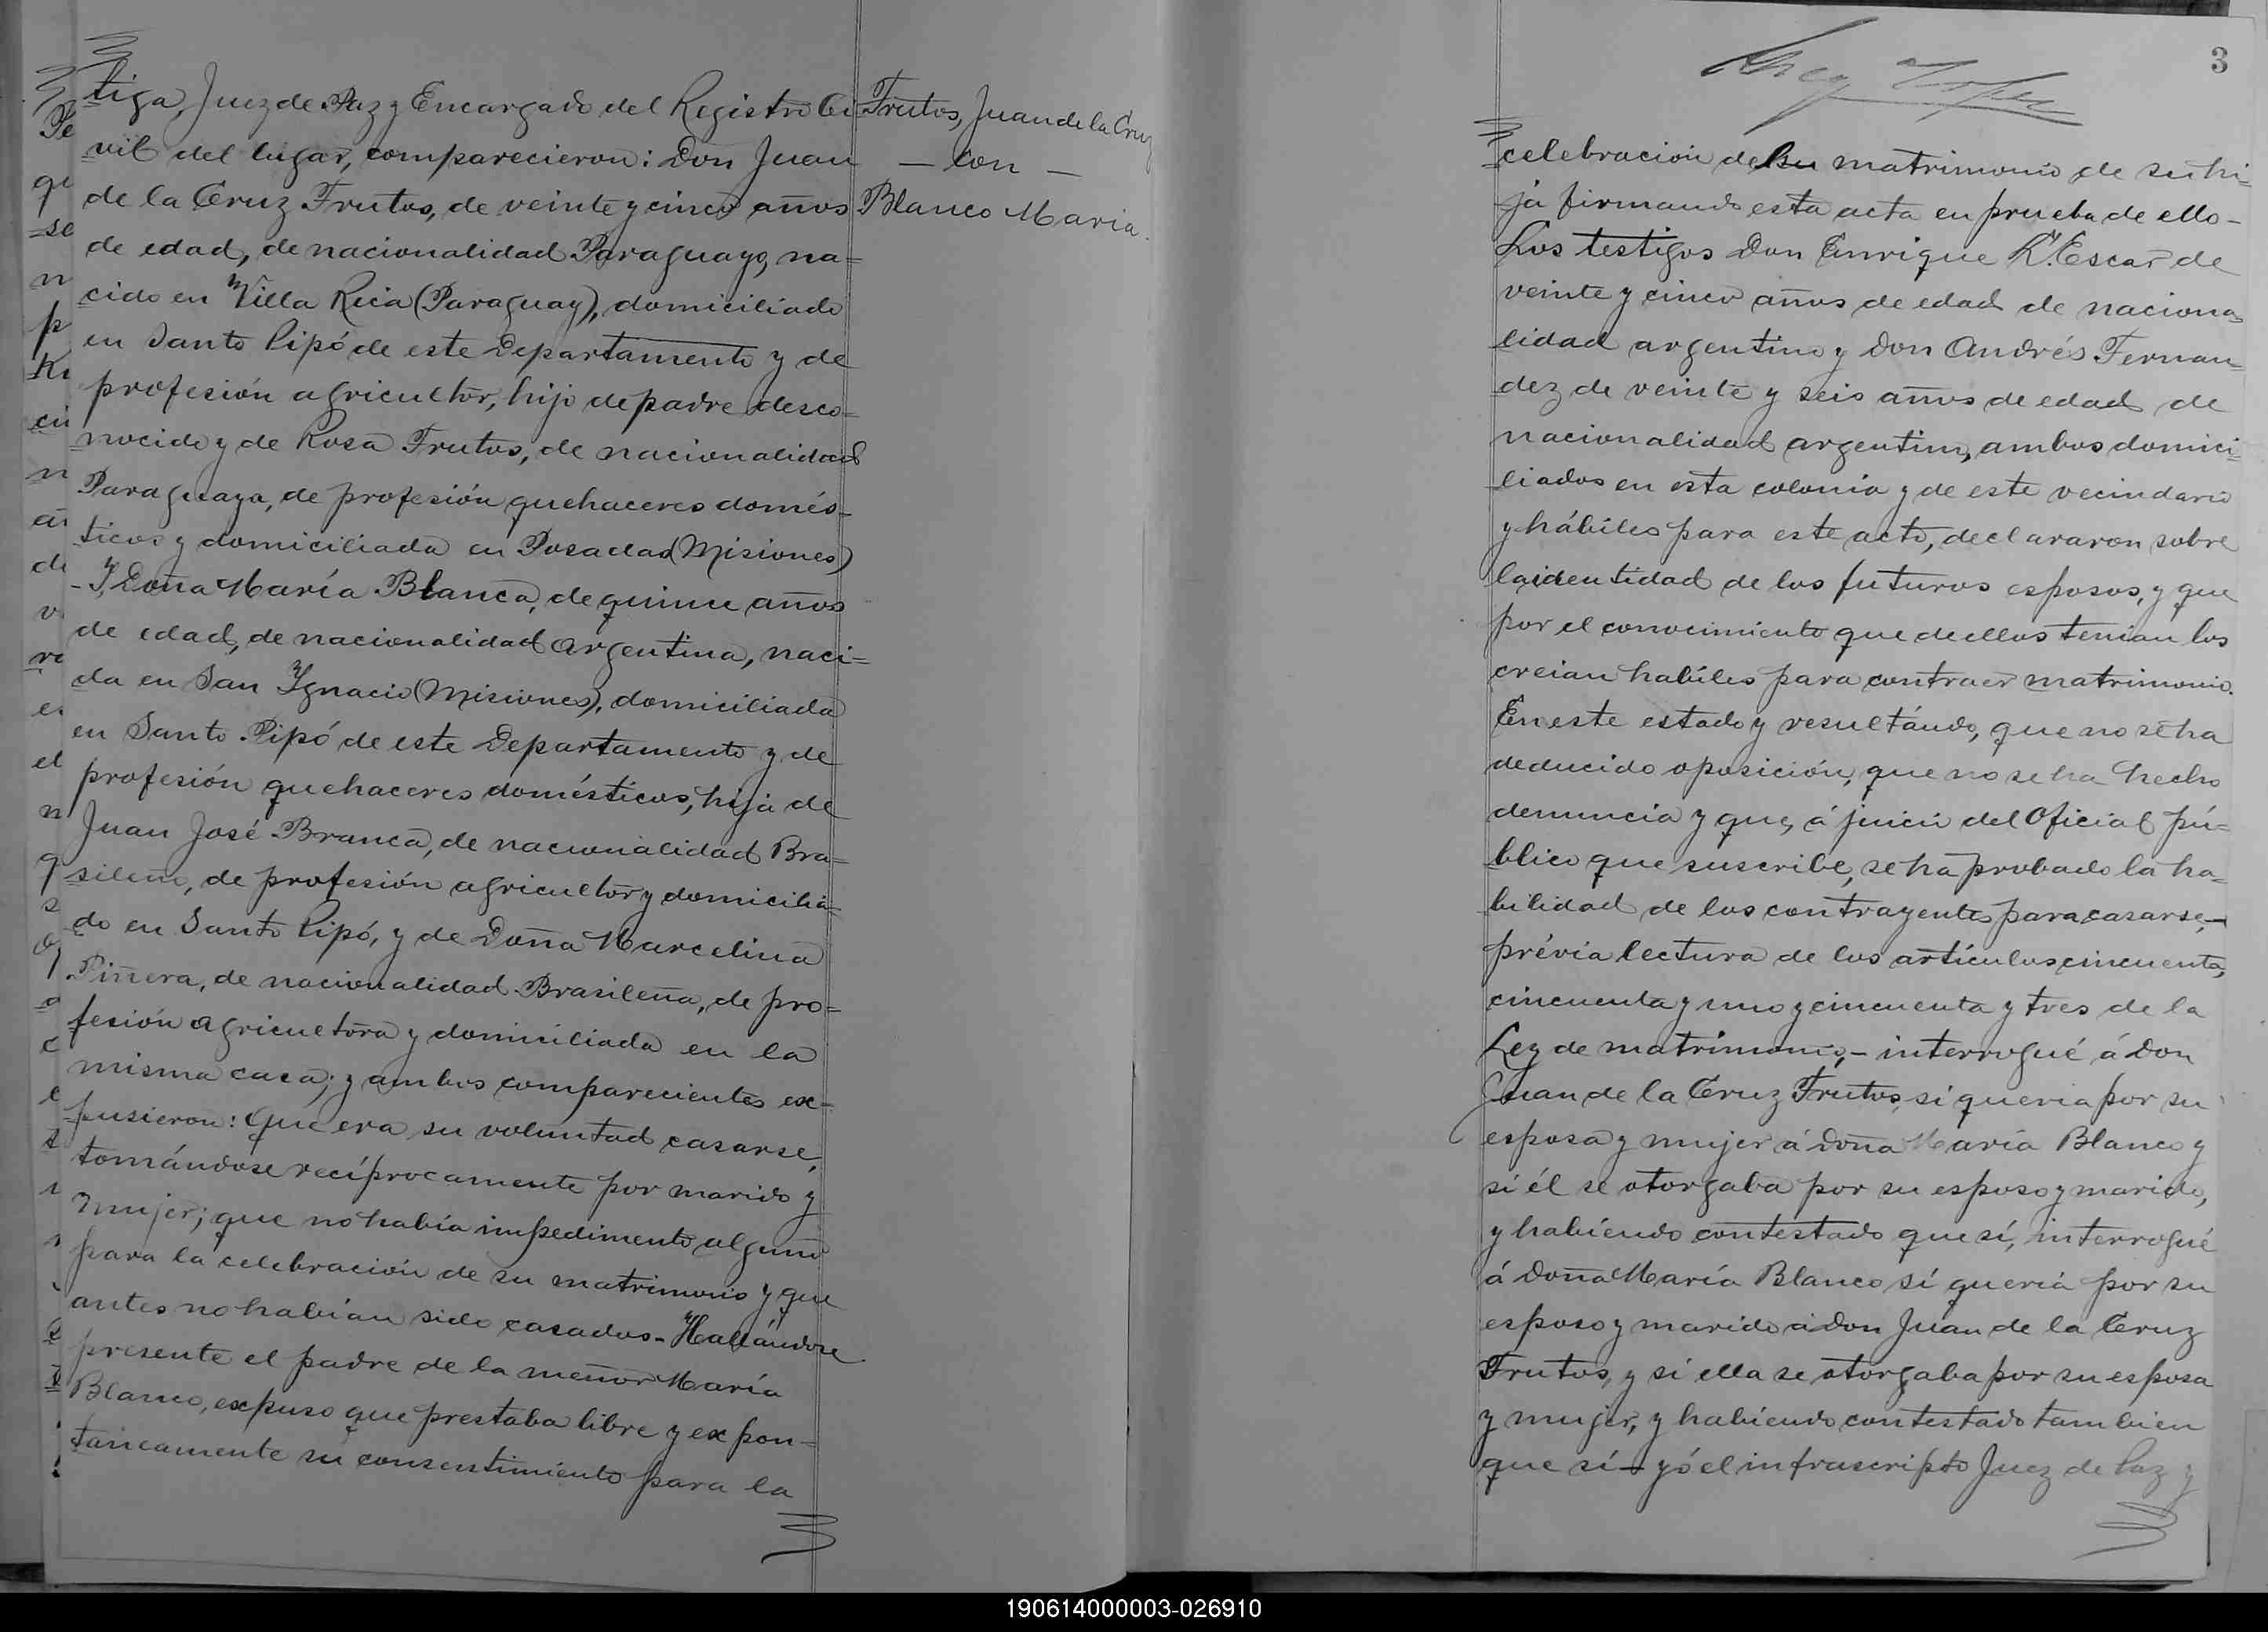 tiga, Juez de Paz y Encargado del Registro Ci
vil del lugar, comparecieron: Don Juan
de la Cruz Frutos, de veinte y cinco años
de edad, de nacionalidad Paraguayo, na=
cido en Villa Rica (Paraguay), domiciliado
en Santo Pipó de este Departamento y de
profesión agricultor, hijo de padre desco-
nocido y de Rosa Frutos, de nacionalidad
Paraguaya, de profesión quehaceres domés-
ticos y domiciliada en Posadas (Misiones)
- Y, Doña María Blanca, de quince años
de edad, de nacionalidad Argentina, naci=
da en San Ygnacio (Misiones), domiciliada
en Santo Pipó de este Departamento y de
profesión quehaceres domésticos, hija de
Juan José Branca, de nacionalidad Bra-
sileño, de profesión agricultor y domicilia-
do en Santo Pipó, y de Doña Marcelina
Piñera, de nacionalidad Brasileña, de pro-
fesión agricultora y domiciliada en la
misma casa; y ambos comparecientes ex-
pusieron: Que era su voluntad casarse,
tomándose recíprocamente por marido y
mujer; que no había impedimento alguno
para la celebración de su matrimonio y que
antes no habían sido casados - Hallándose
presente el padre de la menor María
Blanco, expuso que prestaba libre y expon-
taneamente su consentimiento para la
Frutos, Juan de la Cruz
— con —
Blanco Maria.
3
celebración del matrimonio de su hi-
ja firmando esta acta en prueba de ello -
Los testigos Don Enrique Escar de
veinte y cinco años de edad de naciona=
lidad argentino y Don Andrés Fernan=
dez de veinte y seis años de edad de
nacionalidad argentino, ambos domici-
liados en esta colonia y de este vecindario
y hábiles para este acto, declararon sobre
la identidad de los futuros esposos, y que
por el conocimiento que de ellos tenian los
creian habíles para contraer matrimonio.
En este estado y resultándo, que no se ha
deducido oposición, que no se ha hecho
denuncia y que, á juicio del Oficial pú-
blico que suscribe, se ha probado la ha-
bilidad de los contrayentes para casarse, -
prévia lectura de los artículos cincuenta,
cincuenta y uno y cincuenta y tres de la
Ley de matrimonio, - interrogué á Don
Juan de la Cruz Frutos, si queria por su
esposa y mujer á Doña María Blanco y
si él se otorgaba por su esposo y marido,
y habiendo contestado que sí, interrogué
á Doña María Blanco sí queria por su
esposo y marido á Don Juan de la Cruz
Frutos, y si ella se otorgaba por su esposa
y mujer, y habiendo contestado tambien
que sí - yó el infrascripto Juez de Paz y
190614000003-026910